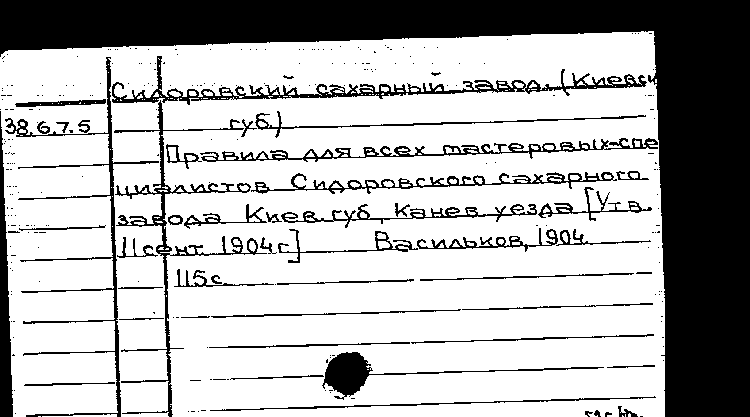 Сидоровский сахарный завод. (Киевск
38.6.7.5 губ.)
Правила для всех мастеровых-спе-
циалистов Сидоровского сахарного
завода Киев. губ., Канев. уезда [Утв.
11 сент. 1904 г.] Васильков, 1904.
115 с.